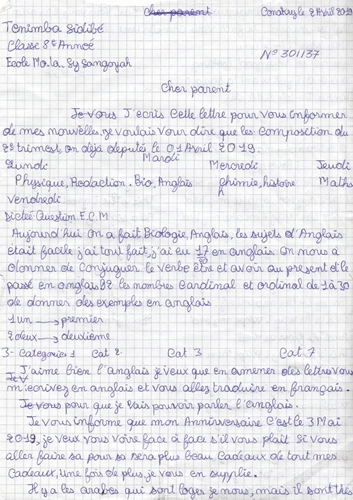 cher parent Conakry le 2 Avril 2019
Tenimba Sidibé
Classe 8e Année
Ecole Mo.la. Sy Sangoyah
N° 301137
Cher parent
Je vous J'ecris Cette lettre pour vous informer
de mes nouvelle. je voulais vour dire que les Composition du
2e trimest. on déja deputés le 01 Avril 2019.
Lundi Mardi Mercredi Jeudi
Physique, Redaction. Bio, Anglais chimie, histoire Maths
h
vendredi
Dictée Question. E.C.M
Aujourd hui On a fait Biologie, Anglais, les sujets d'Anglais
etait facile j'ai tout fait, j'ai eu 17 en anglais. On nous a
20
donner de Conjuguer le verbe être et avoir au present et le
passé en anglais. 02 les nombres Cardinal et ordinal de 1 à 30
de donner des exemples en anglais
1 un → premier
2 deux → deuxième
3- Categories 1 Cat 2 Cat 3 Cat. 7
J'aime bien l'anglais je veux que en amener des lettres vous
m'ecrivez en anglais et vous allez traduire en français.
Je vous pour que je vais pouvoir parler l'anglais.
Je vous informe que mon Anniversaire C'est le 3 Mai
2019, je veux vous voire face à face s'il vous plait si vous
aller faire sa pour so sera plus beau Cadeaux de tout mes
Cadeaux, une fois de plus je vous en supplie.
Il y a les arabes qui sont loger je nous, mais il sont très